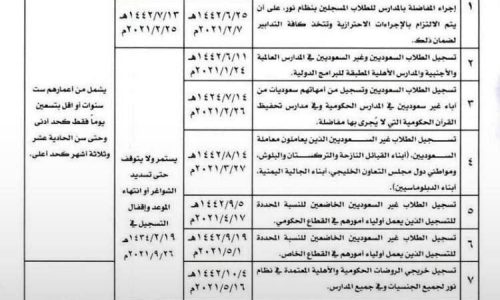 ١
إجراء المفاضلة بالمدارس للطلاب المسجلين بنظام نور، على أن
يتم الالتزام بالإجراءات الاحترازية وتتخذ كافة التدابير
لضمان ذلك.
١٤٤٢/٦/٢٥هـ
٢٠٢١/٢/٧م
١٤٤٢/٧/١٣هـ
٢٠٢١/٢/٢٥م
٢
تسجيل الطلاب السعوديين وغير السعوديين في المدارس العالمية
والأجنبية والمدارس الأهلية المطبقة للبرامج الدولية.
١٤٤٢/٦/١١هـ
٢٠٢١/١/٢٤م
٣
تسجيل الطلاب السعوديين وتسجيل من أمهاتهم سعوديات من
آباء غير سعوديين في المدارس الحكومية وفي مدارس تحفيظ
القرآن الحكومية التي لا يُجرى بها مفاضلة.
١٤٤٢/٧/١٤هـ
٢٠٢١/٢/٢٦م
٤
تسجيل الطلاب غير السعوديين الذين يعاملون معاملة
السعوديين. (أبناء القبائل النازحة والتركستان والبلوش،
ومواطني دول مجلس التعاون الخليجي، أبناء الجالية اليمنية،
أبناء الدبلوماسيين).
١٤٤٢/٨/١٤هـ
٢٠٢١/٣/٢٧م
٥
تسجيل الطلاب غير السعوديين الخاضعين للنسبة المحددة
للتسجيل الذين يعمل أولياء أمورهم في القطاع الحكومي.
١٤٤٢/٩/٥هـ
٢٠٢١/٤/١٧م
٦
تسجيل الطلاب غير السعوديين الخاضعين للنسبة المحددة
للتسجيل الذين يعمل أولياء أمورهم في القطاع الخاص.
١٤٤٢/٩/١٩هـ
٢٠٢١/٥/١م
٧
تسجيل خريجي الروضات الحكومية والأهلية المعتمدة في نظام
نور لجميع الجنسيات وفي جميع المدارس.
١٤٤٢/١٠/٤هـ
٢٠٢١/٥/١٦م
يستمر ولا يتوقف
حتى تسديد
الشواغر أو انتهاء
الموعد وإقفال
التسجيل في
١٤٣٤/٢/١٩هـ
٢٠٢١/٩/٢٦م
يشمل من أعمارهم ست
سنوات أو أقل بتسعين
يوماً فقط كحد أدنى
وحتى سن الحادية عشر
وثلاثة أشهر كحد أعلى.